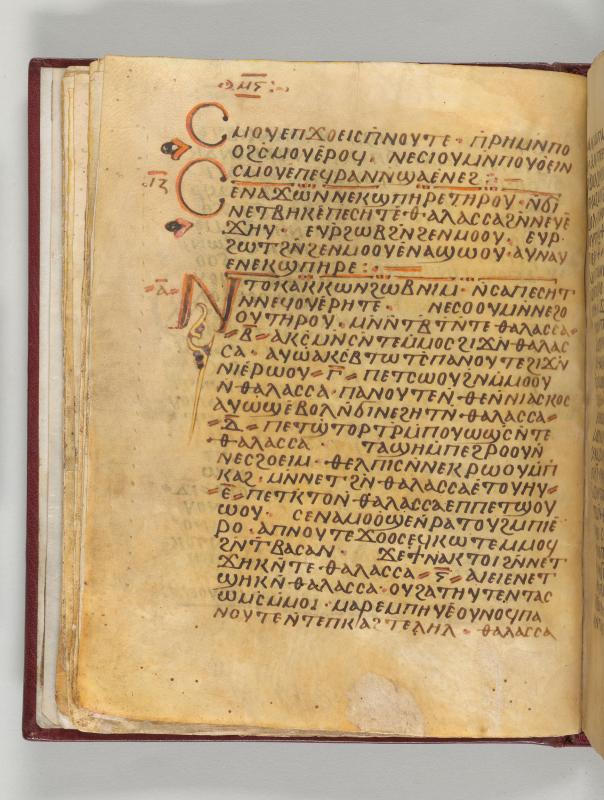 ⲤⲘⲞⲨⲈⲠϪⲞⲈⲒⲤⲠⲚⲞⲨⲦⲈ · ⲠⲢⲎⲘⲚⲠⲞ
ⲞϨⲤⲘⲞⲨⲈⲢⲞϤ · ⲚⲈⲤⲒⲞⲨⲘⲚⲠⲞⲨⲞⲈⲒⲚ
ⲤⲘⲞⲨⲈⲠⲈϤⲢⲀⲚⲚϢⲀⲈⲚⲈϨ :
ⲒⲌ ⲤⲈⲚⲀϪⲰⲚⲚⲈⲔⲰⲠⲎⲢⲈⲦⲎⲢⲞⲨ · ⲚϬⲒ
ⲚⲈⲦⲂⲎⲔⲈⲠⲈⲤⲎⲦⲈ·ⲐⲀⲖⲀⲤⲤⲀϨⲚⲚⲈⲨⲈ
ϪⲎⲨ · ⲈⲨⲢϨⲰⲂϨⲚϨⲈⲚⲘⲞⲞⲨ · ⲈⲨⲢ·
ϨⲰⲦϨⲚϨⲈⲚⲘⲞⲞⲨⲈⲚⲀϢⲰⲞⲨ · ⲀⲨⲚⲀⲨ
ⲈⲚⲈⲔⲰⲠⲎⲢⲈ :
Ⲁ ⲚⲦⲞⲔⲀⲔⲔⲰⲚϨⲰⲂⲚⲒⲘ · ⲚⲤⲀⲠⲈⲤⲎⲦ
ⲚⲚⲈϤⲞⲨⲈⲢⲎⲦⲈ · ⲚⲈⲤⲞⲞⲨⲘⲚⲚⲈϨⲞ
ⲞⲨⲦⲎⲢⲞⲨ · ⲘⲚⲚⲦⲂⲦⲚⲦⲈ ⲐⲀⲖⲀⲤⲤⲀ
Ⲃ ⲀⲔⲤⲘⲚⲤⲚⲦⲈⲘⲘⲞⲤϨⲒϪⲚ ⲐⲀⲖⲀⲤ
ⲤⲀ · ⲀⲨⲰⲀⲔⲤⲂⲦⲰⲦⲤⲠⲀⲚⲞⲨⲦⲈϨⲒϪⲚ
ⲚⲒⲈⲢⲰⲞⲨ Ⲅ ⲠⲈⲦⲤⲰⲞⲨϨⲚⲘⲘⲞⲞⲨ
Ⲛ·ⲐⲀⲖⲀⲤⲤⲀ·ⲠⲀⲚⲞⲨⲦⲈⲚ·ⲐⲈⲚⲚⲒⲀⲤⲔⲞⲤ
ⲀⲨⲰϢⲈⲂⲞⲖⲚϬⲒⲚⲈϨⲎⲦⲚ·ⲐⲀⲖⲀⲤⲤⲀ
Ⲇ ⲠⲈⲦϢⲦⲞⲢⲦⲢⲘⲠⲞⲨⲰϢⲤⲚⲦⲈ
ⲐⲀⲖⲀⲤⲤⲀ · ⲦⲀϢⲎⲘⲠⲈϨⲢⲞⲞⲨⲚ
ⲚⲈⲤϨⲞⲈⲒⲘ · ⲐⲈⲖⲠⲒⲤⲚⲚⲈⲔⲢⲰⲞⲨⲘⲠ
ⲔⲀϨ · ⲘⲚⲚⲈⲦϨⲚ·ⲐⲀⲖⲀⲤⲤⲀⲈⲦⲞⲨⲎⲨ
Ⲉ ⲠⲈⲦⲔⲦⲞⲚ·ⲐⲀⲖⲀⲤⲤⲀⲈⲠⲠⲈⲦϢⲞⲨ
ϢⲞⲨ · ⲤⲈⲚⲀⲘⲞⲞϢⲈⲚⲢⲀⲦⲞⲨϨⲘⲠⲒⲈ
ⲢⲞ · ⲀⲠⲚⲞⲨⲦⲈϪⲞⲞⲤⲈϤⲔⲰⲦⲈⲘⲘⲞϤ
ϨⲚⲦⲂⲀⲤⲀⲚ · ϪⲈϮⲚⲀⲔⲦⲞⲒϨⲚⲚⲈⲦ
ϪⲎⲔⲚⲦⲈ·ⲐⲀⲖⲀⲤⲤⲀ Ⲋ ⲀⲒⲈⲒⲈⲚⲈⲦ
ϢⲎⲔⲚ·ⲐⲀⲖⲀⲤⲤⲀ·ⲞⲨϨⲀⲦⲎⲨⲦⲈⲚⲦⲀⲤ
ⲰⲘⲤⲘⲘⲞⲒ · ⲘⲀⲢⲈⲘⲠⲎⲨⲈⲞⲨⲚⲞϤⲠⲀ
ⲚⲞⲨⲦⲈⲚⲦⲈⲠⲔⲀϨⲦⲈⲖⲎⲖ · ⲐⲀⲖⲀⲤⲤⲀ